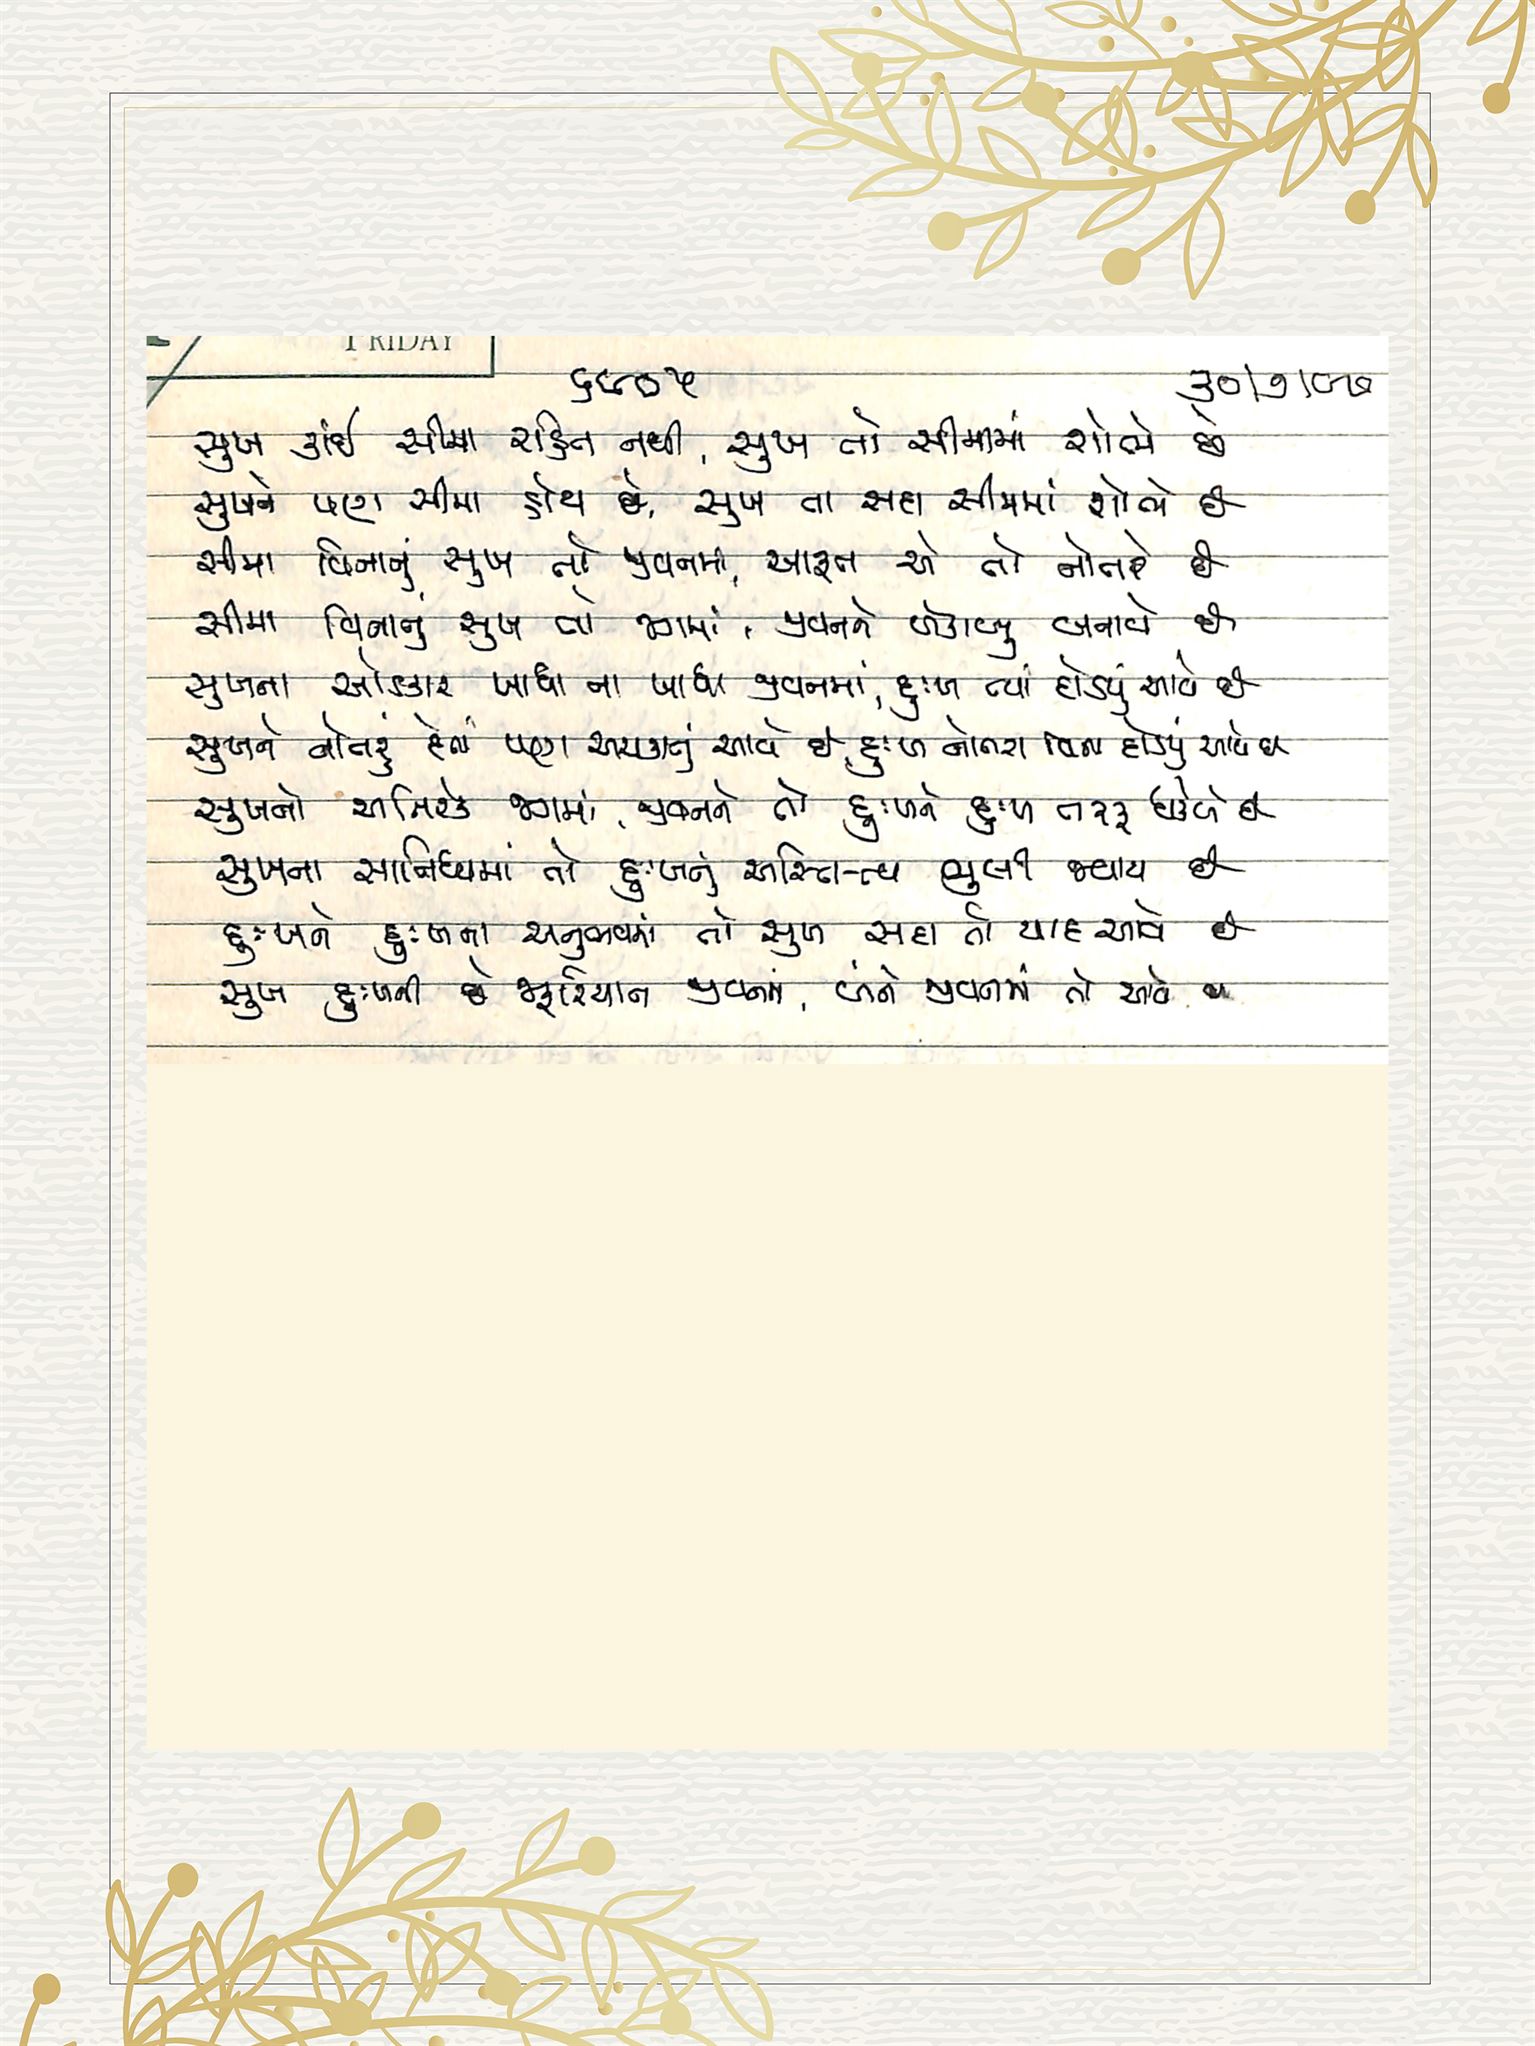 FRIDAY
૬૬૦૫ ૩૦/૧/૮૭
સુખ કાંઈ સીમા રહિત નથી, સુખ તો સીમામાં શોભે છે
સુખને પણ સીમા હોય છે, સુખ તો સદા સીમામાં શોભે છે
સીમા વિનાનું સુખ તો જીવનમાં, આફત એ તો નોતરે છે
સીમા વિનાનું સુખ તો જગમાં, જીવનને બેકાબુ બનાવે છે
સુખના ઓડકાર ખાધા ના ખાધા જીવનમાં, દુઃખ ત્યાં દોડયું આવે છે
સુખને નોતરું દેતાં પણ અચકાતું આવે છે, દુઃખ નોતરા વિના દોડયું આવે છે
સુખનો અતિરેક જગમાં, જીવનને તો દુઃખને દુઃખ તરફ ધકેલે છે
સુખના સાનિધ્યમાં તો દુઃખનું અસ્તિત્વ ભુલી જવાય છે
દુઃખને દુઃખના અનુભવમાં તો સુખ સદા તો યાદ આવે છે
સુખ દુઃખની છે જરૂરિયાત જીવનમાં, બંને જીવનમાં તો આવે છે